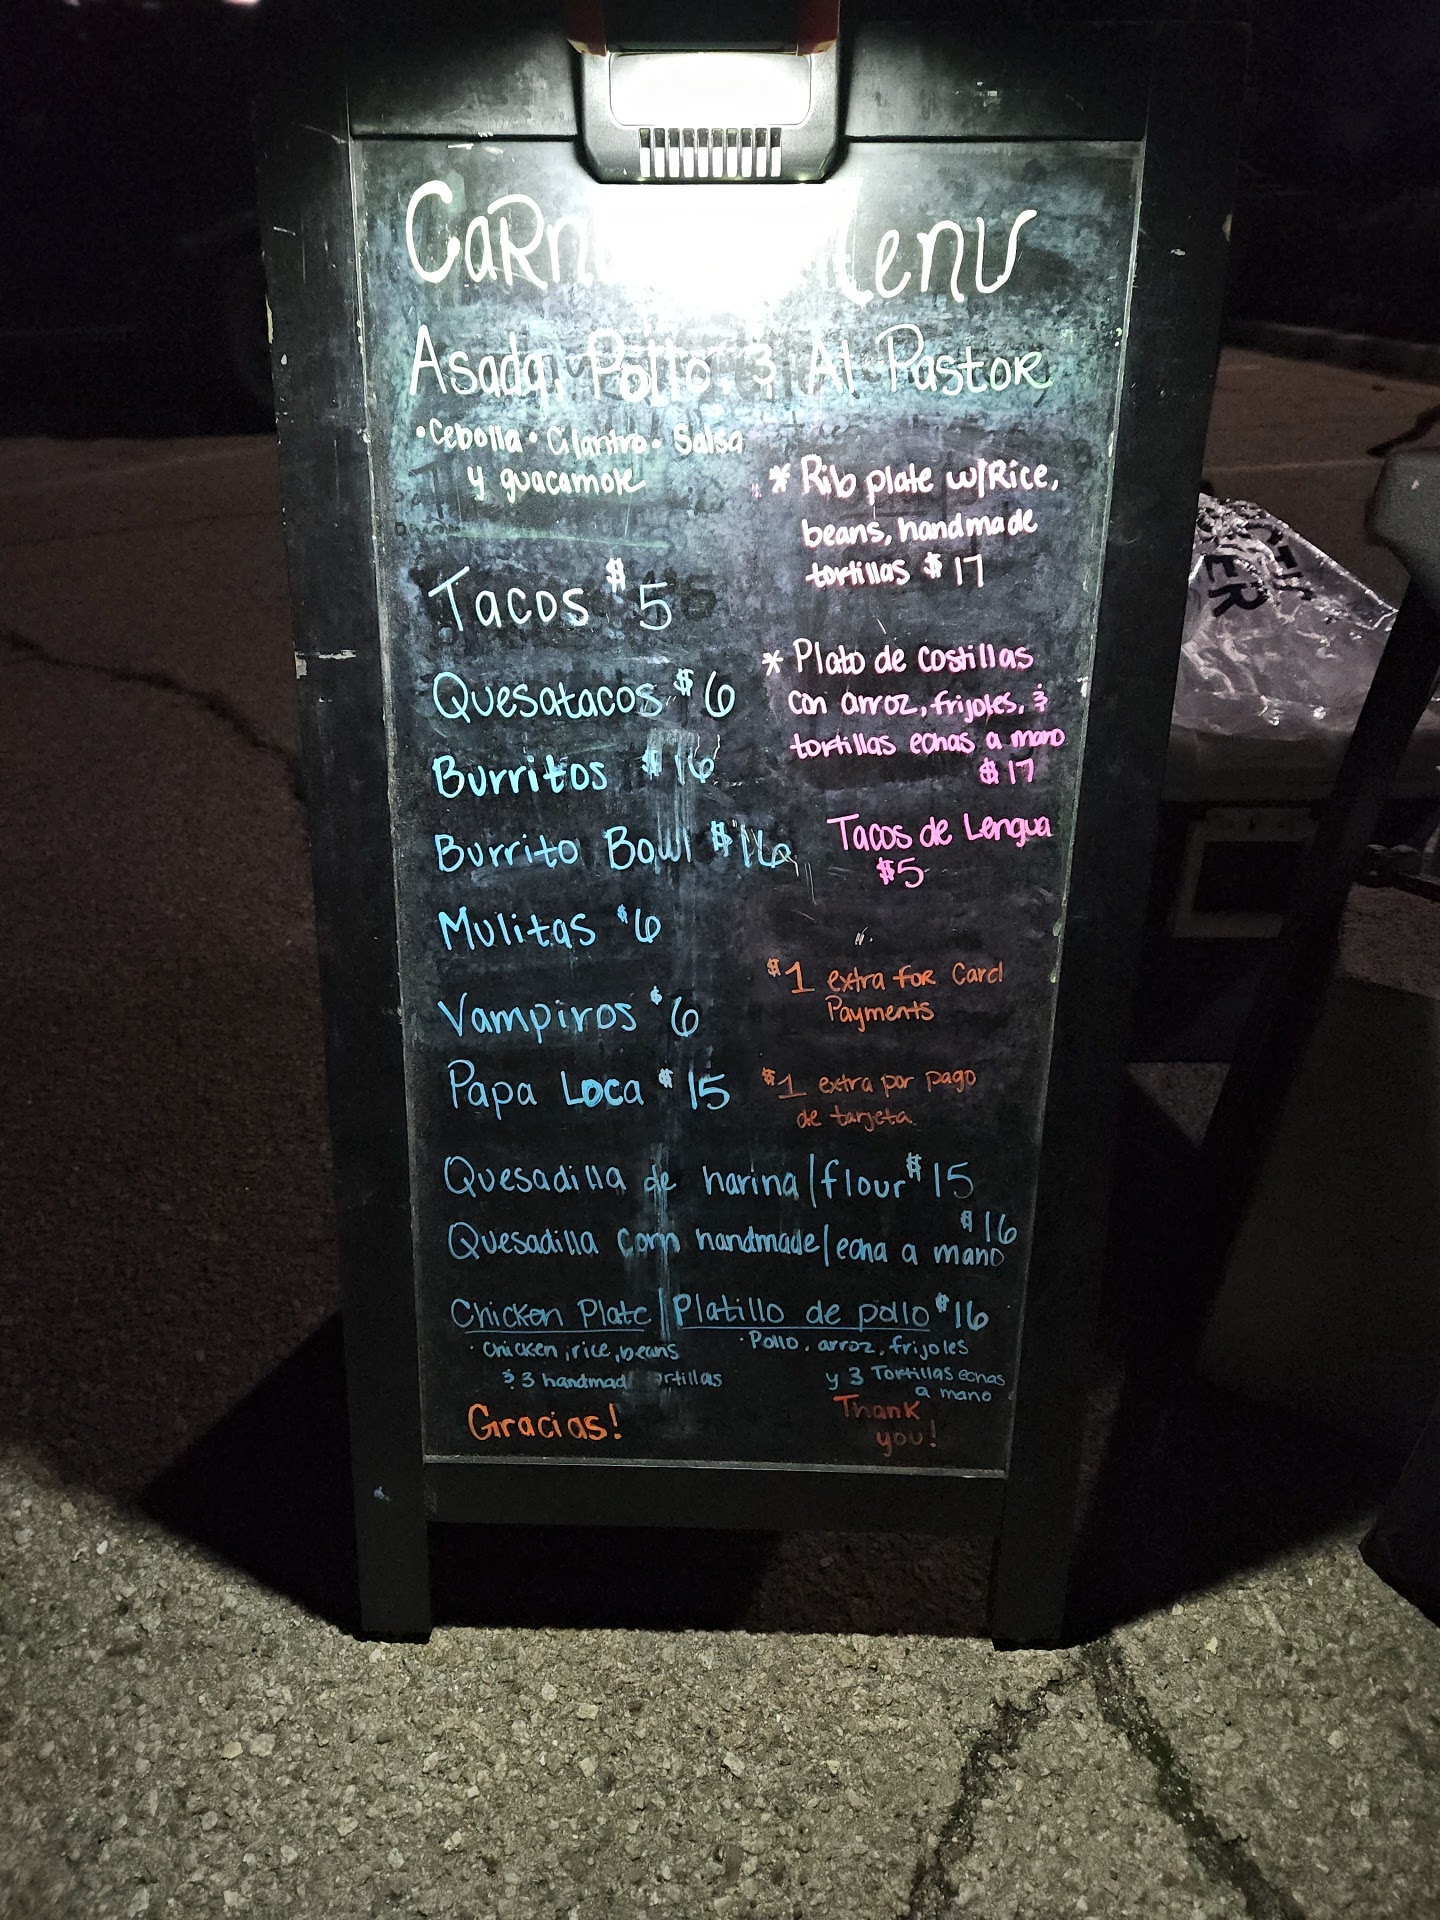 Asada, Pollo, & Al Pastor
• Cebolla • Cilantro • Salsa
y guacamole
Tacos $5
Quesatacos $6
Burritos $16
Burrito Bowl $16
Mulitas $6
Vampiros $6
Papa Loca $15
* Rib plate w/Rice,
beans, handmade
tortillas $17
* Plato de costillas
con arroz, frijoles, &
tortillas echas a mano
$17
Tacos de Lengua
$5
$1 extra for Card
Payments
$1 extra por pago
de tarjeta
Quesadilla de harina/flour $15
Quesadilla corn handmade/echa a mano $16
Chicken Plate/Platillo de pollo $16
• Chicken, rice, beans
& 3
• Pollo, arroz, frijoles
y 3 Tortillas echas
a mano
Gracias!
Thank
you!